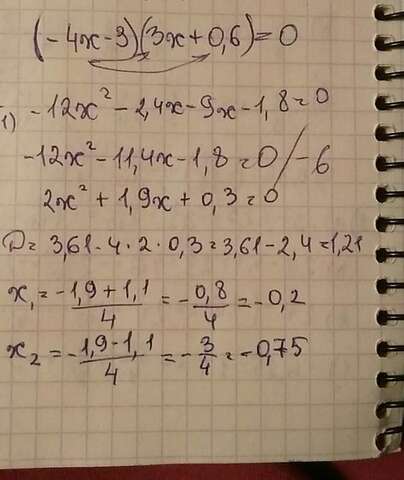 (-4x-3)(3x+0,6)=0
1) -12x² - 2,4x - 9x - 1,8 = 0
-12x² - 11,4x - 1,8 = 0 / -6
2x² + 1,9x + 0,3 = 0
D = 3,61 - 4 · 2 · 0,3 = 3,61 - 2,4 = 1,21
x₁ = (-1,9 + 1,1)/4 = -0,8/4 = -0,2
x₂ = (-1,9 - 1,1)/4 = -3/4 = -0,75